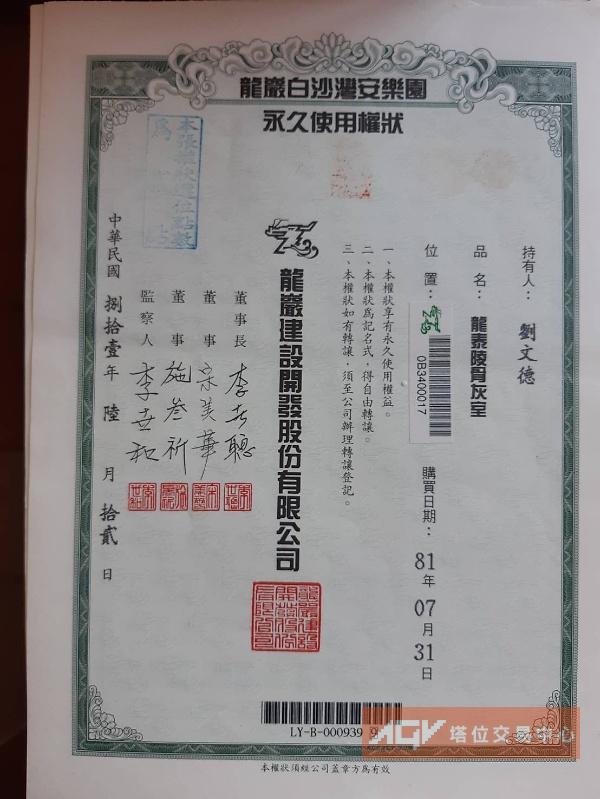 龍巖白沙灣安樂園
永久使用權狀
持有人：劉文德
品名：龍泰陵骨灰室
位置：
0B3400017
購買日期：81年07月31日
一、本權狀享有永久使用權益。
二、本權狀為記名式，得自由轉讓。
三、本權狀如有轉讓，須至公司辦理轉讓登記。
龍巖建設開發股份有限公司
董事長 李世聰
董事 宗美華
董事 施叁祈
監察人 李世和
中華民國捌拾壹年陸月拾貳日
龍巖建設開發股份有限公司
LY-B-000939
AGV 塔位交易中心
本權狀須經公司蓋章方為有效